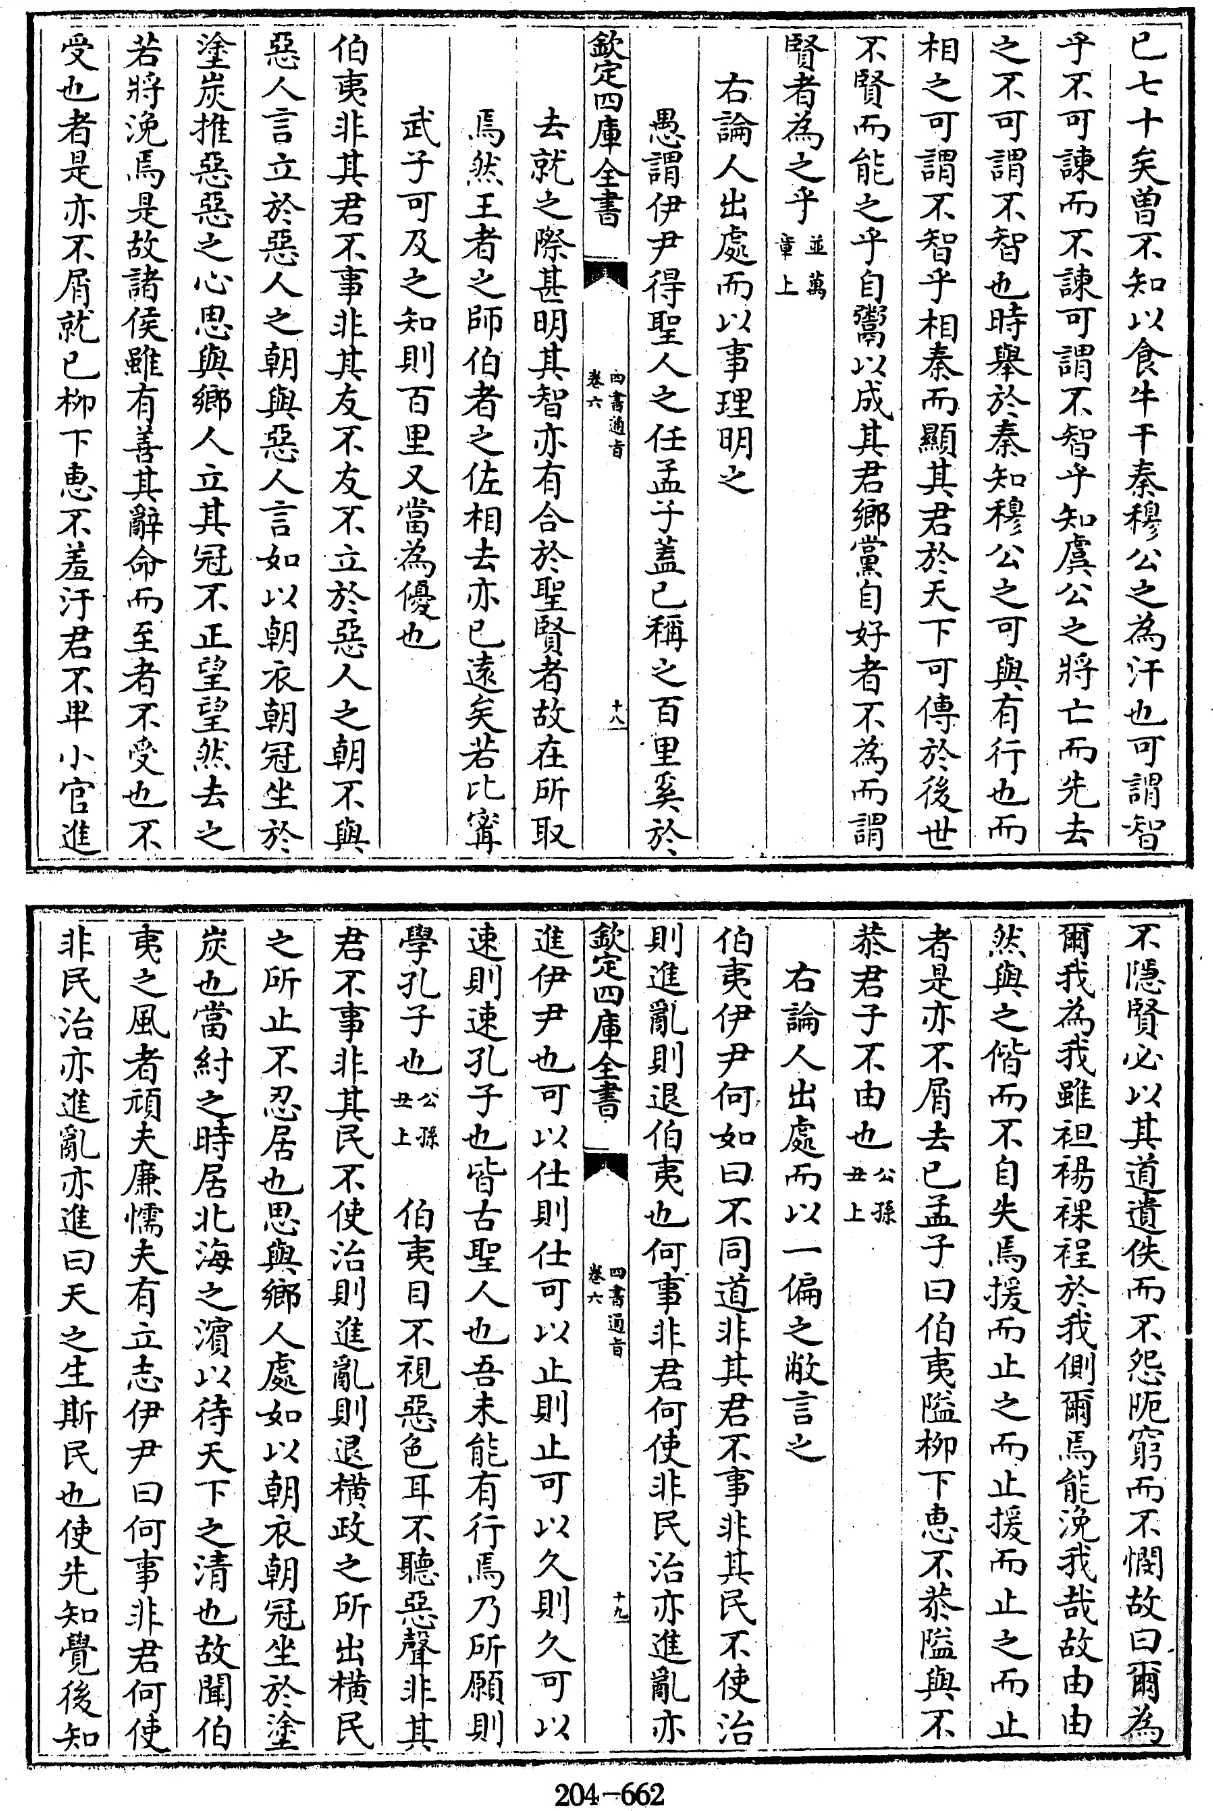 已七十矣曽不知以食牛干秦穆公之為汙也可謂智
乎不可諫而不諫可謂不智乎知虞公之將亡而先去
之不可謂不智也時舉於秦知穆公之可與有行也而
相之可謂不智乎相秦而顯其君於天下可傳於後世
不賢而能之乎自鬻以成其君鄉黨自好者不為而謂
賢者為之乎並萬章上
右論人出處而以事理明之
愚謂伊尹得聖人之任孟子蓋已稱之百里奚於
欽定四庫全書
四書通旨
卷六
十八
去就之際甚明其智亦有合於聖賢者故在所取
焉然王者之師伯者之佐相去亦已遠矣若比甯
武子可及之知則百里又當為優也
伯夷非其君不事非其友不友不立於惡人之朝不與
惡人言立於惡人之朝與惡人言如以朝衣朝冠坐於
塗炭推惡惡之心思與鄉人立其冠不正望望然去之
若將浼焉是故諸侯雖有善其辭命而至者不受也不
受也者是亦不屑就已柳下惠不羞汙君不卑小官進
不隱賢必以其道遺佚而不怨阨窮而不憫故曰爾為
爾我為我雖袒裼裸裎於我側爾焉能浼我哉故由由
然與之偕而不自失焉援而止之而止援而止之而止
者是亦不屑去已孟子曰伯夷隘柳下惠不恭隘與不
恭君子不由也公孫丑上
右論人出處而以一偏之敝言之
伯夷伊尹何如曰不同道非其君不事非其民不使治
則進亂則退伯夷也何事非君何使非民治亦進亂亦
欽定四庫全書
四書通旨
卷六
十九
進伊尹也可以仕則仕可以止則止可以久則久可以
速則速孔子也皆古聖人也吾未能有行焉乃所願則
學孔子也公孫丑上 伯夷目不視惡色耳不聽惡聲非其
君不事非其民不使治則進亂則退橫政之所出橫民
之所止不忍居也思與鄉人處如以朝衣朝冠坐於塗
炭也當紂之時居北海之濱以待天下之清也故聞伯
夷之風者頑夫廉懦夫有立志伊尹曰何事非君何使
非民治亦進亂亦進曰天之生斯民也使先知覺後知
204-662